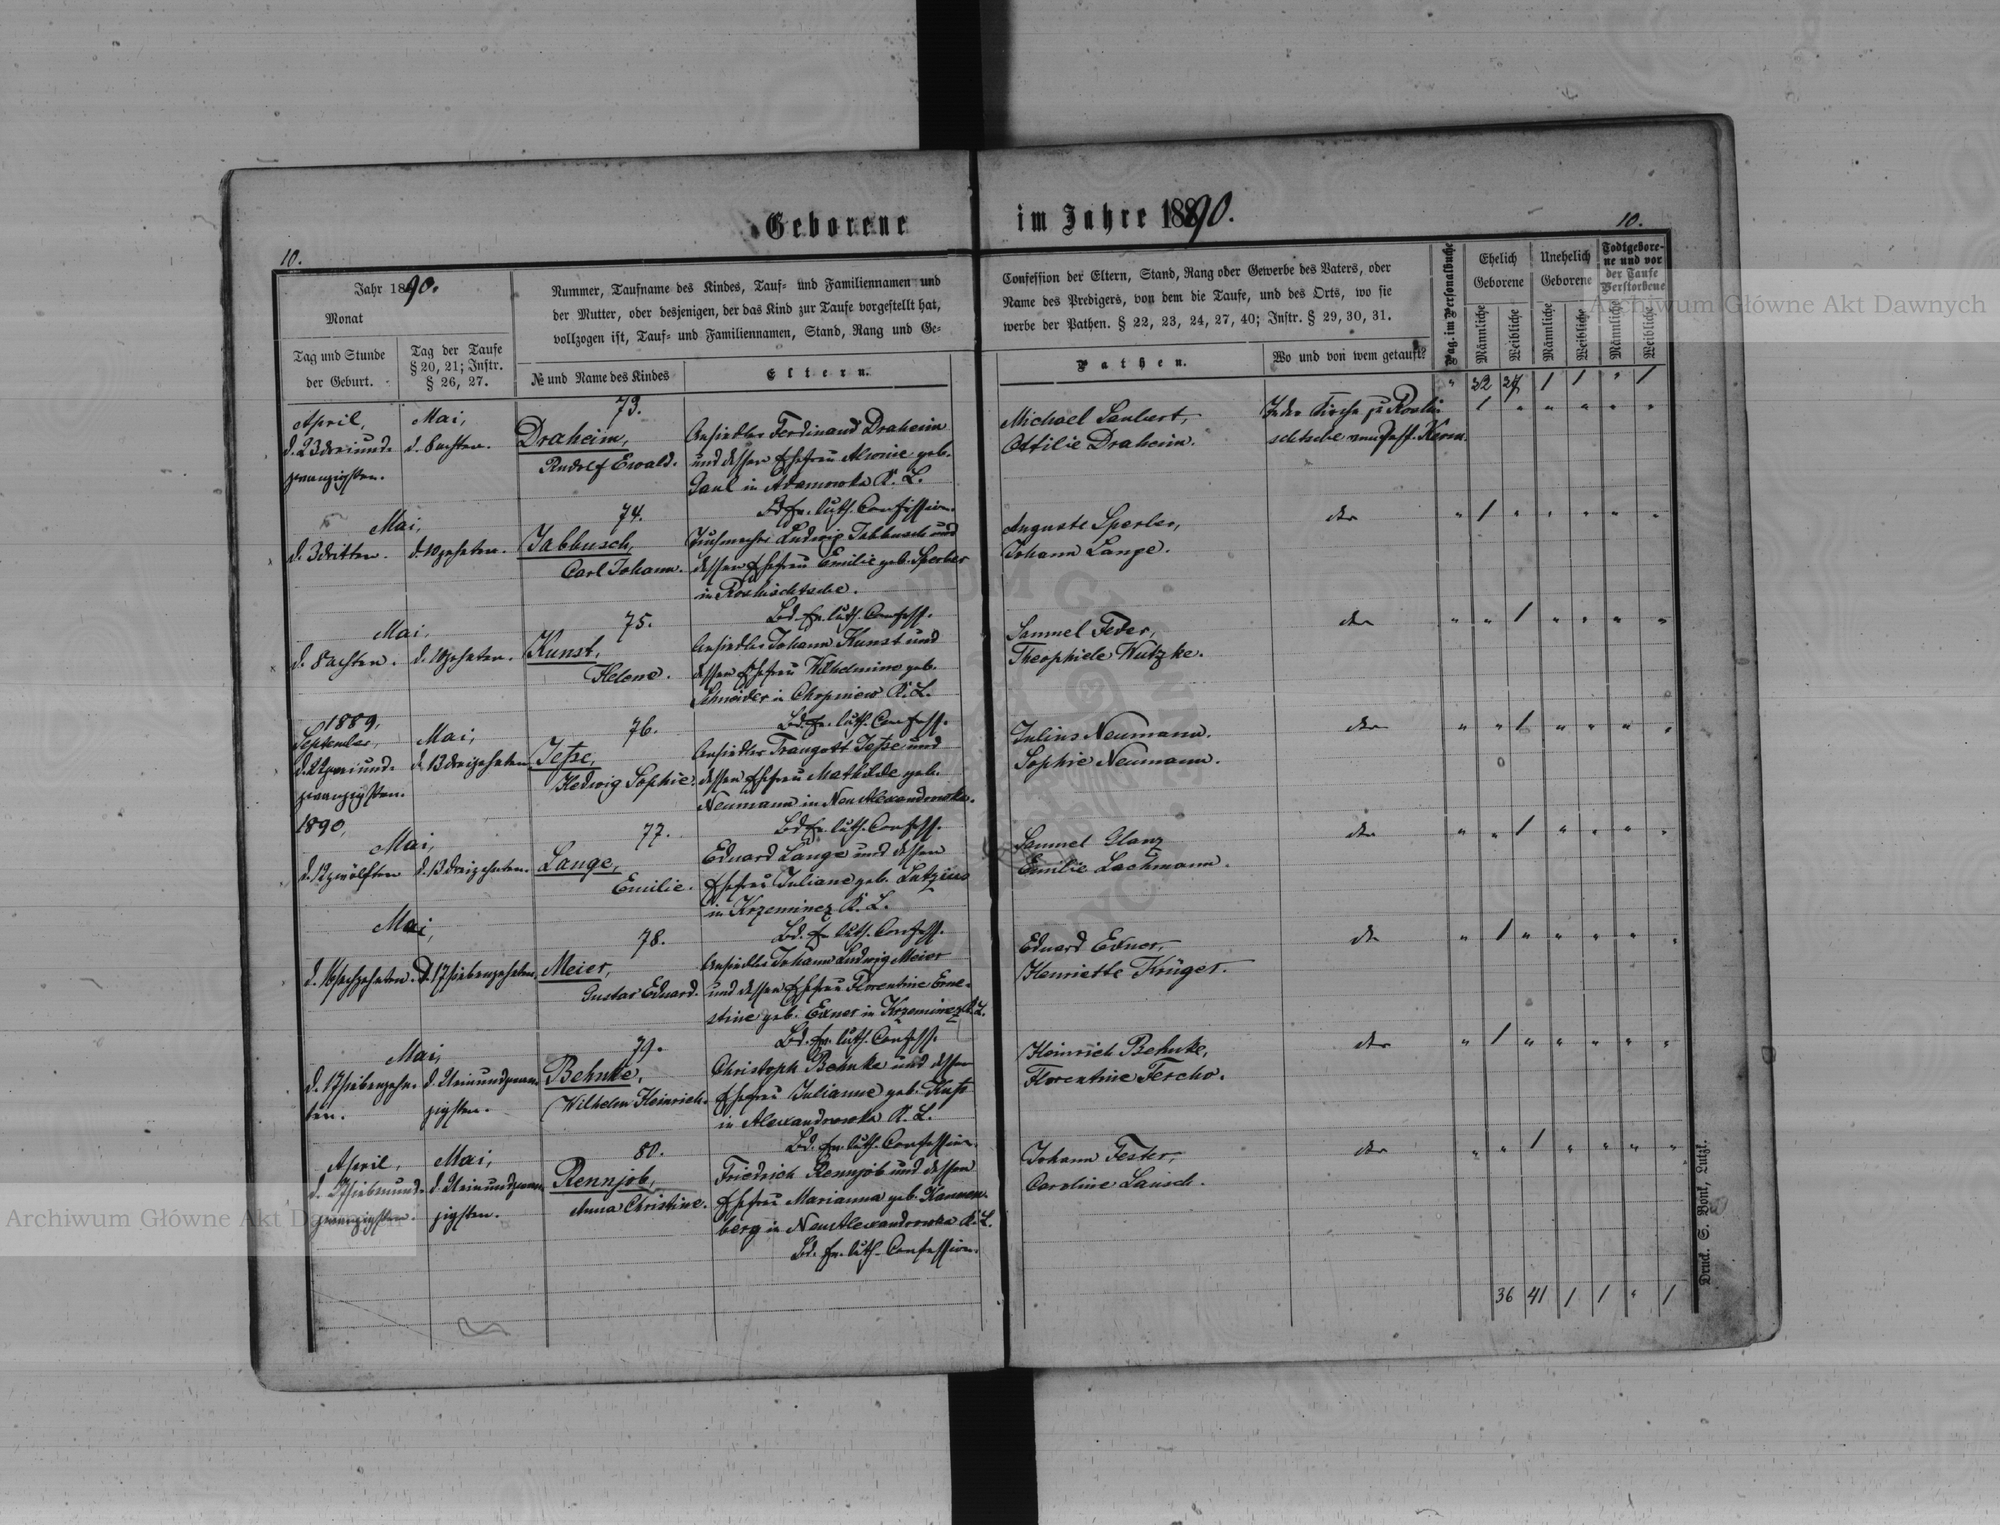 Geborene im Jahre 1890.
10.
10.
Jahr 1890.
Monat
Tag und Stunde
der Geburt.
Tag der Taufe
§ 20, 21; Instr.
§ 26, 27.
Nummer, Taufname des Kindes, Tauf- und Familiennamen und
der Mutter, oder desjenigen, der das Kind zur Taufe vorgestellt hat,
vollzogen ist, Tauf- und Familiennamen, Stand, Rang und Ge-
№ und Name des Kindes
Eltern.
Confession der Eltern, Stand, Rang oder Gewerbe des Vaters, oder
Name des Predigers, von dem die Taufe, und des Orts, wo sie
werbe der Pathen. § 22, 23, 24, 27, 40; Instr. § 29, 30, 31.
Pathen.
Wo und von wem getauft?
Pag. im Personalbuche
Ehelich
Geborene
Unehelich
Geborene
Todtgebore-
ne und vor
der Taufe
Verstorbene
Männliche
Weibliche
Männliche
Weibliche
Männliche
Weibliche
" 32 37 1 1 " 1
April,
d. 23 dreiund-
zwanzigsten.
Mai,
d. 8 achten.
73.
Draheim,
Rudolf Ewald.
Ansiedler Ferdinand Draheim
und dessen Ehefrau Alwine geb.
Paul in Adamowka K. L.
Bd. ev. luth. Confession.
Michael Laubert,
Ottilie Draheim.
In der Kirche zu Roschi-
schtsche von Past. Kerm.
1 " " " " "
Mai,
d. 3 dritten.
d. 10 zehnten.
74.
Jabbusch,
Carl Johann.
Ludwig Jabbusch und
dessen Ehefrau Emilie geb. Sperber
in Roschischtsche.
Bd. ev. luth. Confess.
Auguste Sperber,
Johann Lange.
do
" 1 " " " " "
Mai,
d. 8 achten.
d. 10 zehnten.
75.
Kunst,
Helene.
Ansiedler Johann Kunst und
dessen Ehefrau Wilhelmine geb.
Schneider in Chopniew K. L.
Bd. ev. luth. Confess.
Samuel Feder,
Theophiele Wutzke.
do
" " 1 " " " "
1889,
September,
d. 22 zweiund-
zwanzigsten.
Mai,
d. 13 dreizehnten
76.
Jeske,
Hedwig Sophie.
Ansiedler Traugott Jeske und
dessen Ehefrau Mathilde geb.
Neumann in Neu Alexandrowka.
Bd. ev. luth. Confess.
Julius Neumann.
Sophie Neumann.
do
" " 1 " " " "
1890,
Mai,
d. 12 zwölften
d. 13 dreizehnten.
77.
Lange,
Emilie.
Eduard Lange und dessen
Ehefrau Juliane geb. Lutzius
in Krzeminez K. L.
Bd. ev. luth. Confess.
Samuel Glanz
Emilie Lachmann.
do
" " 1 " " " "
Mai,
d. 16 sechzehnten.
d. 17 siebenzehnten.
78.
Meier,
Gustav Eduard.
Ansiedler Johann Ludwig Meier
und dessen Ehefrau Florentine Erne-
stine geb. Exner in Krzeminez K. L.
Bd. ev. luth. Confess.
Eduard Exner,
Henriette Krüger.
do
" 1 " " " " "
Mai,
d. 17 siebenzehn-
ten.
d. 21 einundzwan-
zigsten.
79.
Behnke,
Wilhelm Heinrich.
Christoph Behnke und dessen
Ehefrau Julianne geb.
in Alexandrowka K. L.
Bd. ev. luth. Confession.
Heinrich Behnke,
Florentine Fercho.
do
" 1 " " " " "
April,
d. 27 siebenund-
zwanzigsten.
Mai,
d. 21 einundzwan-
zigsten.
80.
Rennjob,
Anna Christine.
Friedrich Rennjob und dessen
Ehefrau Marianna geb. Kannen-
berg in Neu Alexandrowka K. L.
Bd. ev. luth. Confession.
Johann Fester,
Caroline Lausch.
do
" " 1 " " " "
36 41 1 1 " 1
Druck. S. Bonk, Lutzk.
Archiwum Główne Akt Dawnych
Archiwum Główne Akt Dawnych